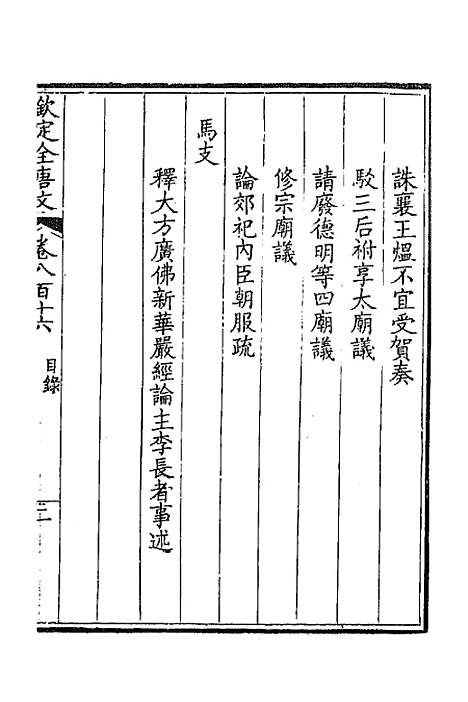 誅襄王熅不宜受賀奏
駮三后祔享太廟議
請廢德明等四廟議
修宗廟議
論郊祀內臣朝服疏
馬支
釋大方廣佛新華嚴經論主李長者事述
欽定全唐文
卷八百十六
目錄
二